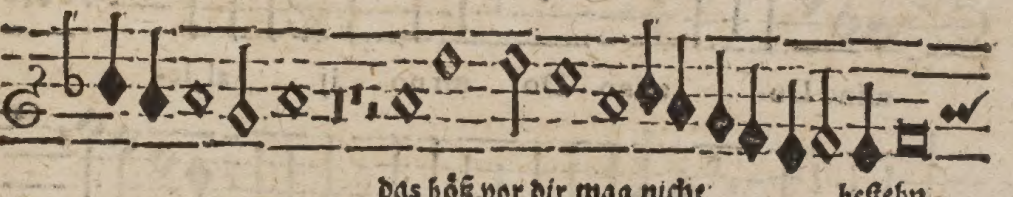 das böß vor dir mag nicht bestehn